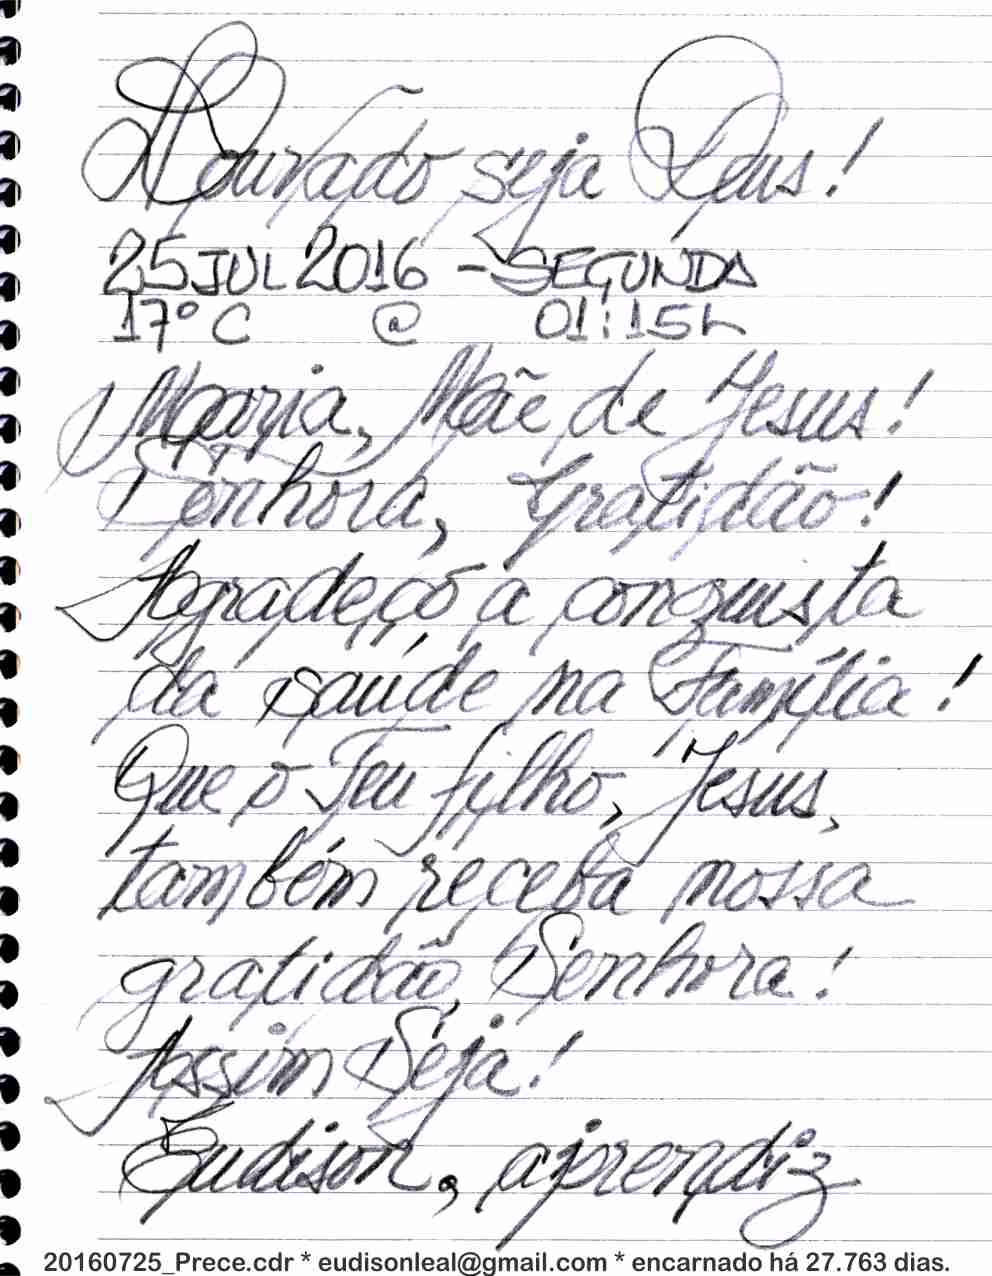 Louvado seja Deus!
25 JUL 2016 - SEGUNDA
17º C @ 01:15h
Maria, Mãe de Jesus!
Senhora, Gratidão!
Agradeço a conquista
da saúde na Família!
Que o Teu filho, Jesus,
também receba nossa
gratidão, Senhora!
Assim Seja!
Eudison, aprendiz
20160725_Prece.cdr * eudisonleal@gmail.com * encarnado há 27.763 dias.